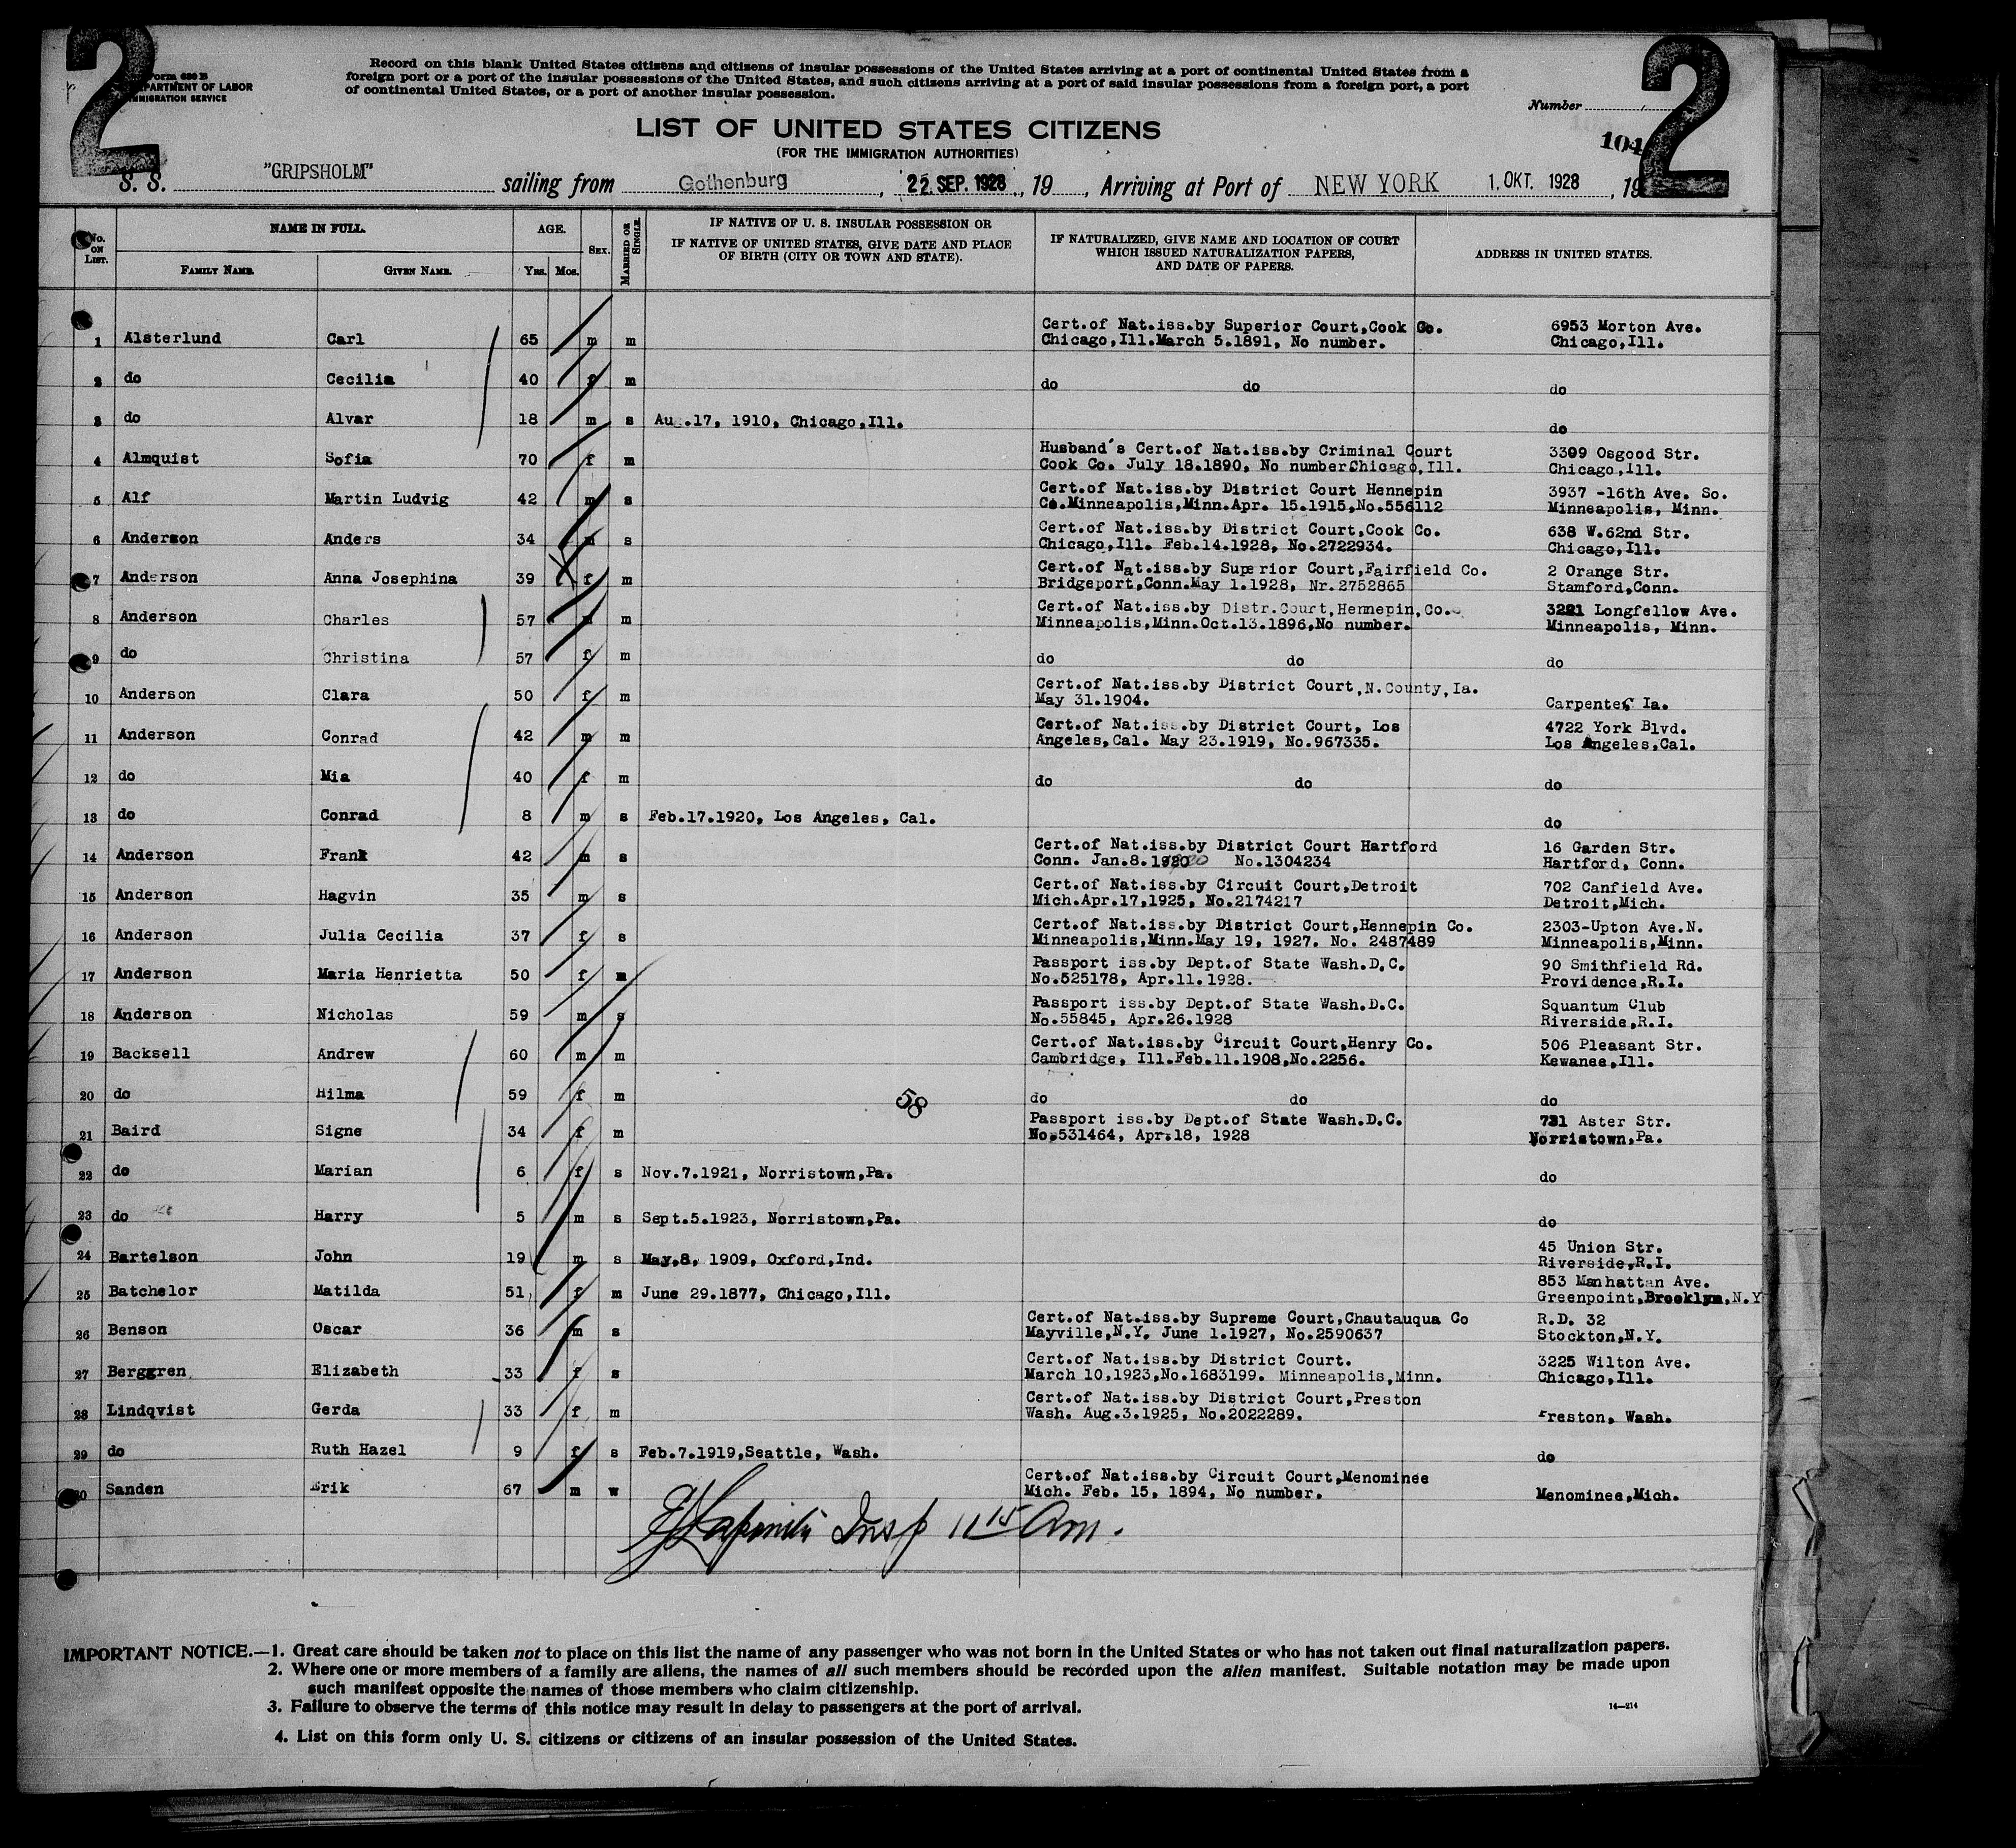 2 2
Form 630 B
DEPARTMENT OF LABOR
IMMIGRATION SERVICE
Record on this blank United States citizens and citizens of insular possessions of the United States arriving at a port of continental United States from a
foreign port or a port of the insular possessions of the United States, and such citizens arriving at a port of said insular possessions from a foreign port, a port
of continental United States, or a port of another insular possession.
Number
LIST OF UNITED STATES CITIZENS
(FOR THE IMMIGRATION AUTHORITIES)
104
S. S. "GRIPSHOLM" sailing from Gothenburg, 22. SEP. 1928, 19 , Arriving at Port of NEW YORK 1. OKT. 1928, 19
No. ON LIST. NAME IN FULL. AGE. SEX. MARRIED OR SINGLE. IF NATIVE OF U. S. INSULAR POSSESSION OR IF NATIVE OF UNITED STATES, GIVE DATE AND PLACE OF BIRTH (CITY OR TOWN AND STATE). IF NATURALIZED, GIVE NAME AND LOCATION OF COURT WHICH ISSUED NATURALIZATION PAPERS, AND DATE OF PAPERS. ADDRESS IN UNITED STATES.
FAMILY NAME. GIVEN NAME. YRS. MOS.
1 Alsterlund Carl 65 m m Cert.of Nat.iss.by Superior Court,Cook Co. 6953 Morton Ave.
Chicago,Ill.March 5.1891, No number. Chicago,Ill.
2 do Cecilia 40 f m do do do
3 do Alvar 18 m s Aug.17, 1910, Chicago,Ill. do
4 Almquist Sofia 70 f m Husband's Cert.of Nat.iss.by Criminal Court 3309 Osgood Str.
Cook Co. July 18.1890, No numberChicago,Ill. Chicago,Ill.
5 Alf Martin Ludvig 42 m s Cert.of Nat.iss.by District Court Hennepin 3937 -16th Ave. So.
Co.Minneapolis,Minn.Apr. 15.1915,No.556112 Minneapolis, Minn.
6 Anderson Anders 34 m s Cert.of Nat.iss.by District Court,Cook Co. 638 W.62nd Str.
Chicago,Ill. Feb.14.1928, No.2722934. Chicago,Ill.
7 Anderson Anna Josephina 39 f m Cert.of Nat.iss.by Superior Court,Fairfield Co. 2 Orange Str.
Bridgeport,Conn.May 1.1928, Nr.2752865 Stamford,Conn.
8 Anderson Charles 57 m Cert.of Nat.iss.by Distr.Court,Hennepin,Co. 3221 Longfellow Ave.
Minneapolis,Minn.Oct.13.1896,No number. Minneapolis, Minn.
9 do Christina 57 f m do do do
10 Anderson Clara 50 f m Cert.of Nat.iss.by District Court,N.County,Ia.
May 31.1904. Carpenter, Ia.
11 Anderson Conrad 42 m m Cert.of Nat.iss.by District Court, Los 4722 York Blvd.
Angeles,Cal. May 23.1919, No.967335. Los Angeles,Cal.
12 do Mia 40 f m do do do
13 do Conrad 8 m s Feb.17.1920, Los Angeles, Cal. do
14 Anderson Frank 42 m s Cert.of Nat.iss.by District Court Hartford 16 Garden Str.
Conn. Jan.8.1920 No.1304234 Hartford, Conn.
15 Anderson Hagvin 35 m s Cert.of Nat.iss.by Circuit Court,Detroit 702 Canfield Ave.
Mich.Apr.17,1925, No.2174217 Detroit,Mich.
16 Anderson Julia Cecilia 37 f s Cert.of Nat.iss.by District Court,Hennepin Co. 2303-Upton Ave.N.
Minneapolis,Minn.May 19, 1927. No. 2487489 Minneapolis,Minn.
17 Anderson Maria Henrietta 50 f m Passport iss.by Dept.of State Wash.D.C. 90 Smithfield Rd.
No.525178, Apr.11.1928. Providence,R.I.
18 Anderson Nicholas 59 m s Passport iss.by Dept.of State Wash.D.C. Squantum Club
No.55845, Apr.26.1928 Riverside,R.I.
19 Backsell Andrew 60 m m Cert.of Nat.iss.by Circuit Court,Henry Co. 506 Pleasant Str.
Cambridge, Ill.Feb.11.1908,No.2256. Kewanee,Ill.
20 do Hilma 59 f m 58 do do do
21 Baird Signe 34 f m Passport iss.by Dept.of State Wash.D.C. 731 Aster Str.
No.531464, Apr.18, 1928 Norristown,Pa.
22 do Marian 6 f s Nov.7.1921, Norristown,Pa. do
23 do Harry 5 m s Sept.5.1923, Norristown,Pa. do
24 Bartelson John 19 m s May.8, 1909, Oxford,Ind. 45 Union Str.
Riverside,R.I.
25 Batchelor Matilda 51 f m June 29.1877, Chicago,Ill. 853 Manhattan Ave.
Greenpoint,Brooklyn,N.Y
26 Benson Oscar 36 m s Cert.of Nat.iss.by Supreme Court,Chautauqua Co R.D. 32
Mayville,N.Y. June 1.1927, No.2590637 Stockton,N.Y.
27 Berggren Elizabeth 33 f s Cert.of Nat.iss.by District Court. 3225 Wilton Ave.
March 10,1923,No.1683199. Minneapolis,Minn. Chicago,Ill.
28 Lindqvist Gerda 33 f m Cert.of Nat.iss.by District Court,Preston
Wash. Aug.3.1925, No.2022289. Preston, Wash.
29 do Ruth Hazel 9 f s Feb.7.1919,Seattle, Wash. do
30 Sanden Erik 67 m w Cert.of Nat.iss.by Circuit Court,Menominee
Mich. Feb. 15, 1894, No number. Menominee,Mich.
Insp 11 15 Am.
IMPORTANT NOTICE.—1. Great care should be taken not to place on this list the name of any passenger who was not born in the United States or who has not taken out final naturalization papers.
2. Where one or more members of a family are aliens, the names of all such members should be recorded upon the alien manifest. Suitable notation may be made upon
such manifest opposite the names of those members who claim citizenship.
3. Failure to observe the terms of this notice may result in delay to passengers at the port of arrival.
14—214
4. List on this form only U. S. citizens or citizens of an insular possession of the United States.